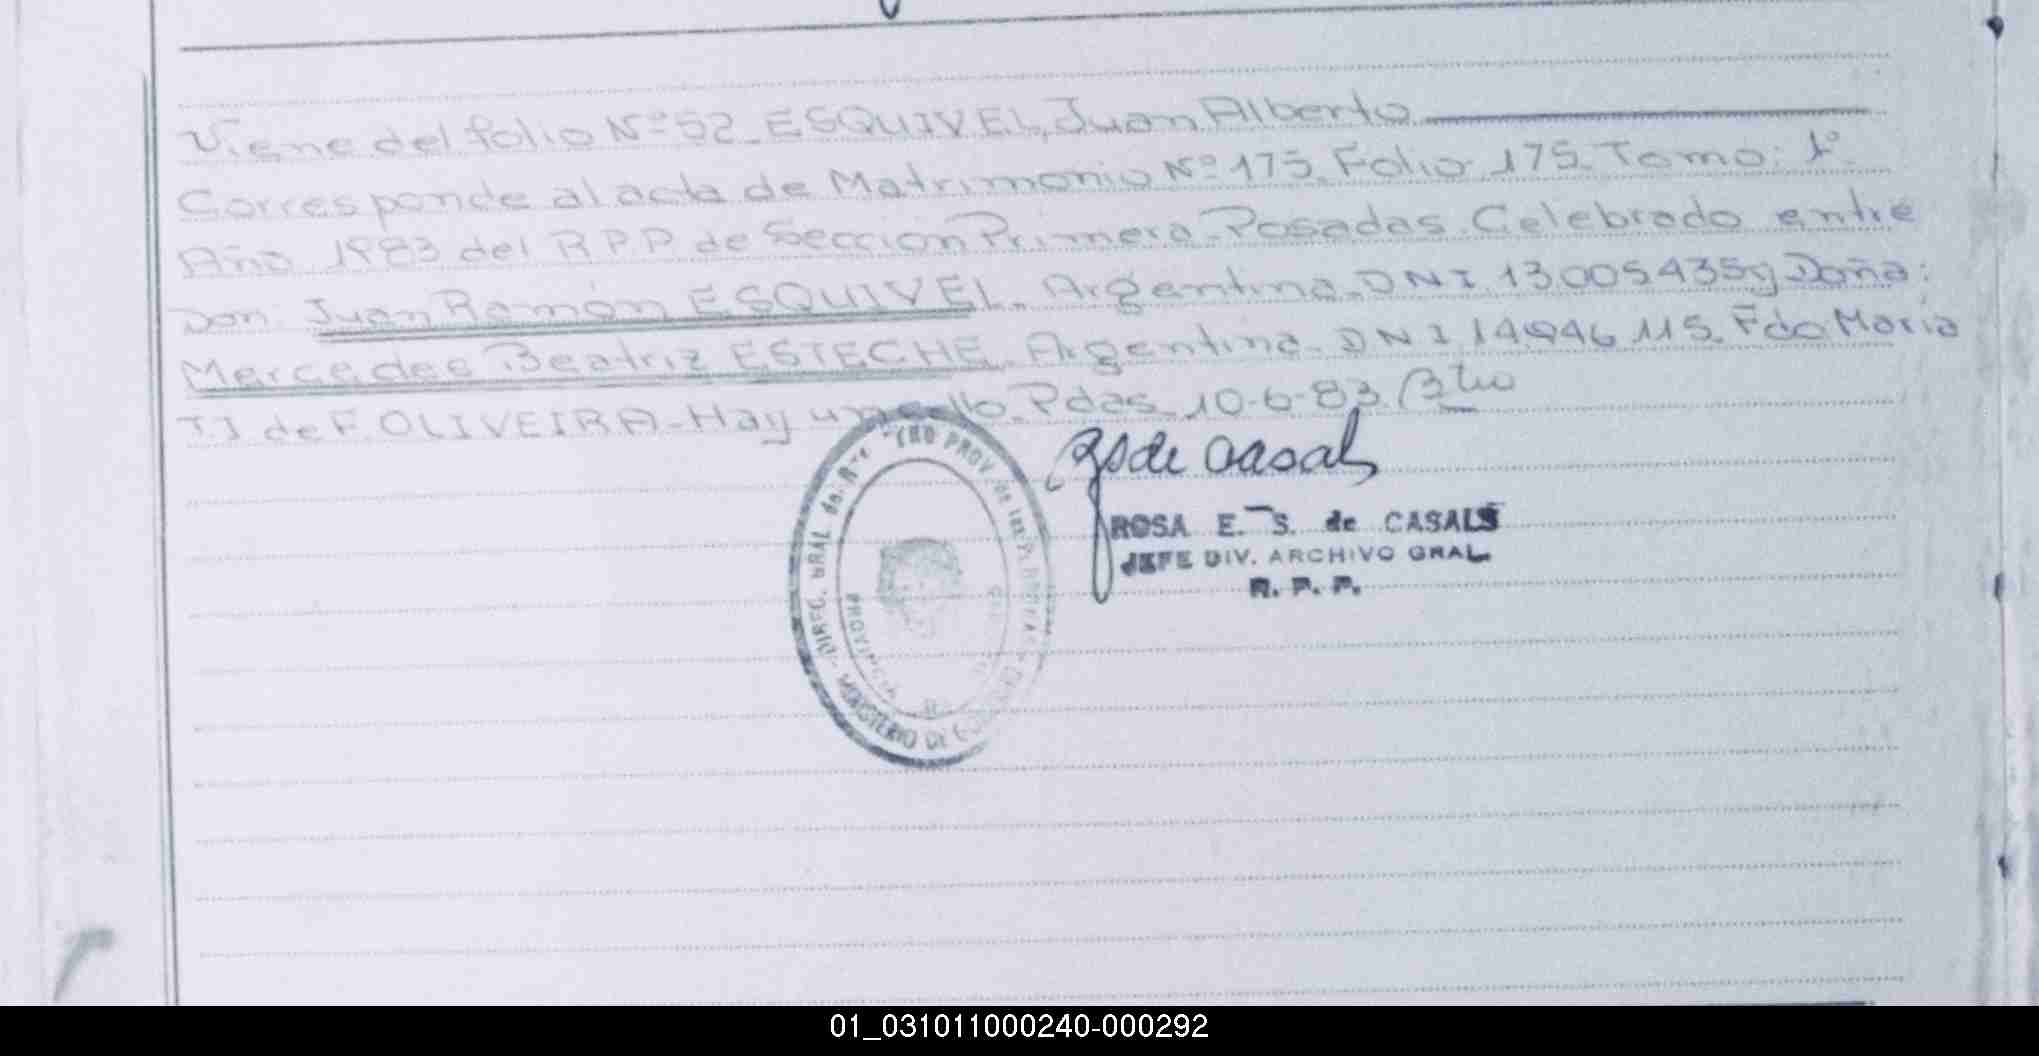 Viene del folio Nº 52_ ESQUIVEL, Juan Alberto
Corresponde al acta de Matrimonio Nº 175. Folio 175. Tomo: 1º.
Año 1983 del R P P de Sección Primera - Posadas. Celebrado entre
Don: Juan Ramón ESQUIVEL. Argentino. DNI 13005435 y Doña:
Mercedes Beatriz ESTECHE. Argentina. DNI 14946115. Fdo Maria
T.J de F. OLIVEIRA - Hay un sello. Pdas. 10-6-83.
de Casals
ROSA E. S. de CASALS
JEFE DIV. ARCHIVO GRAL
R. P. P.
DIREC. GRAL de PROV. de las
MINISTERIO DE
PROVINCIA
01_031011000240-000292